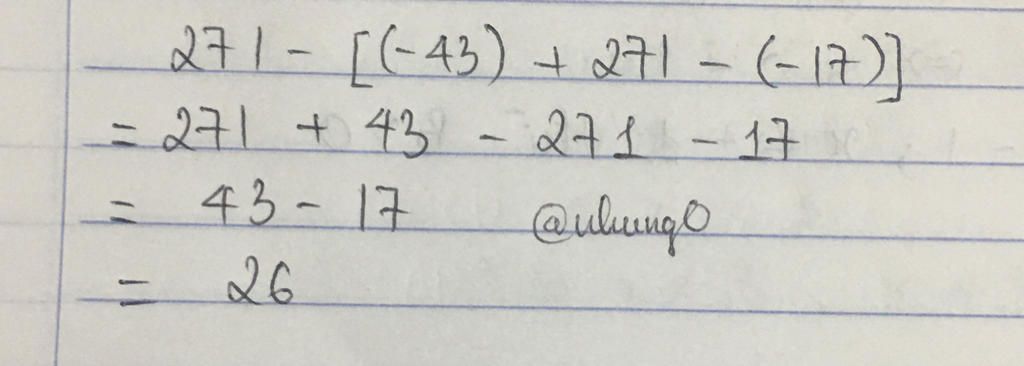 271 - [(-43) + 271 - (-17)]
= 271 + 43 - 271 - 17
= 43 - 17 @uhung0
= 26